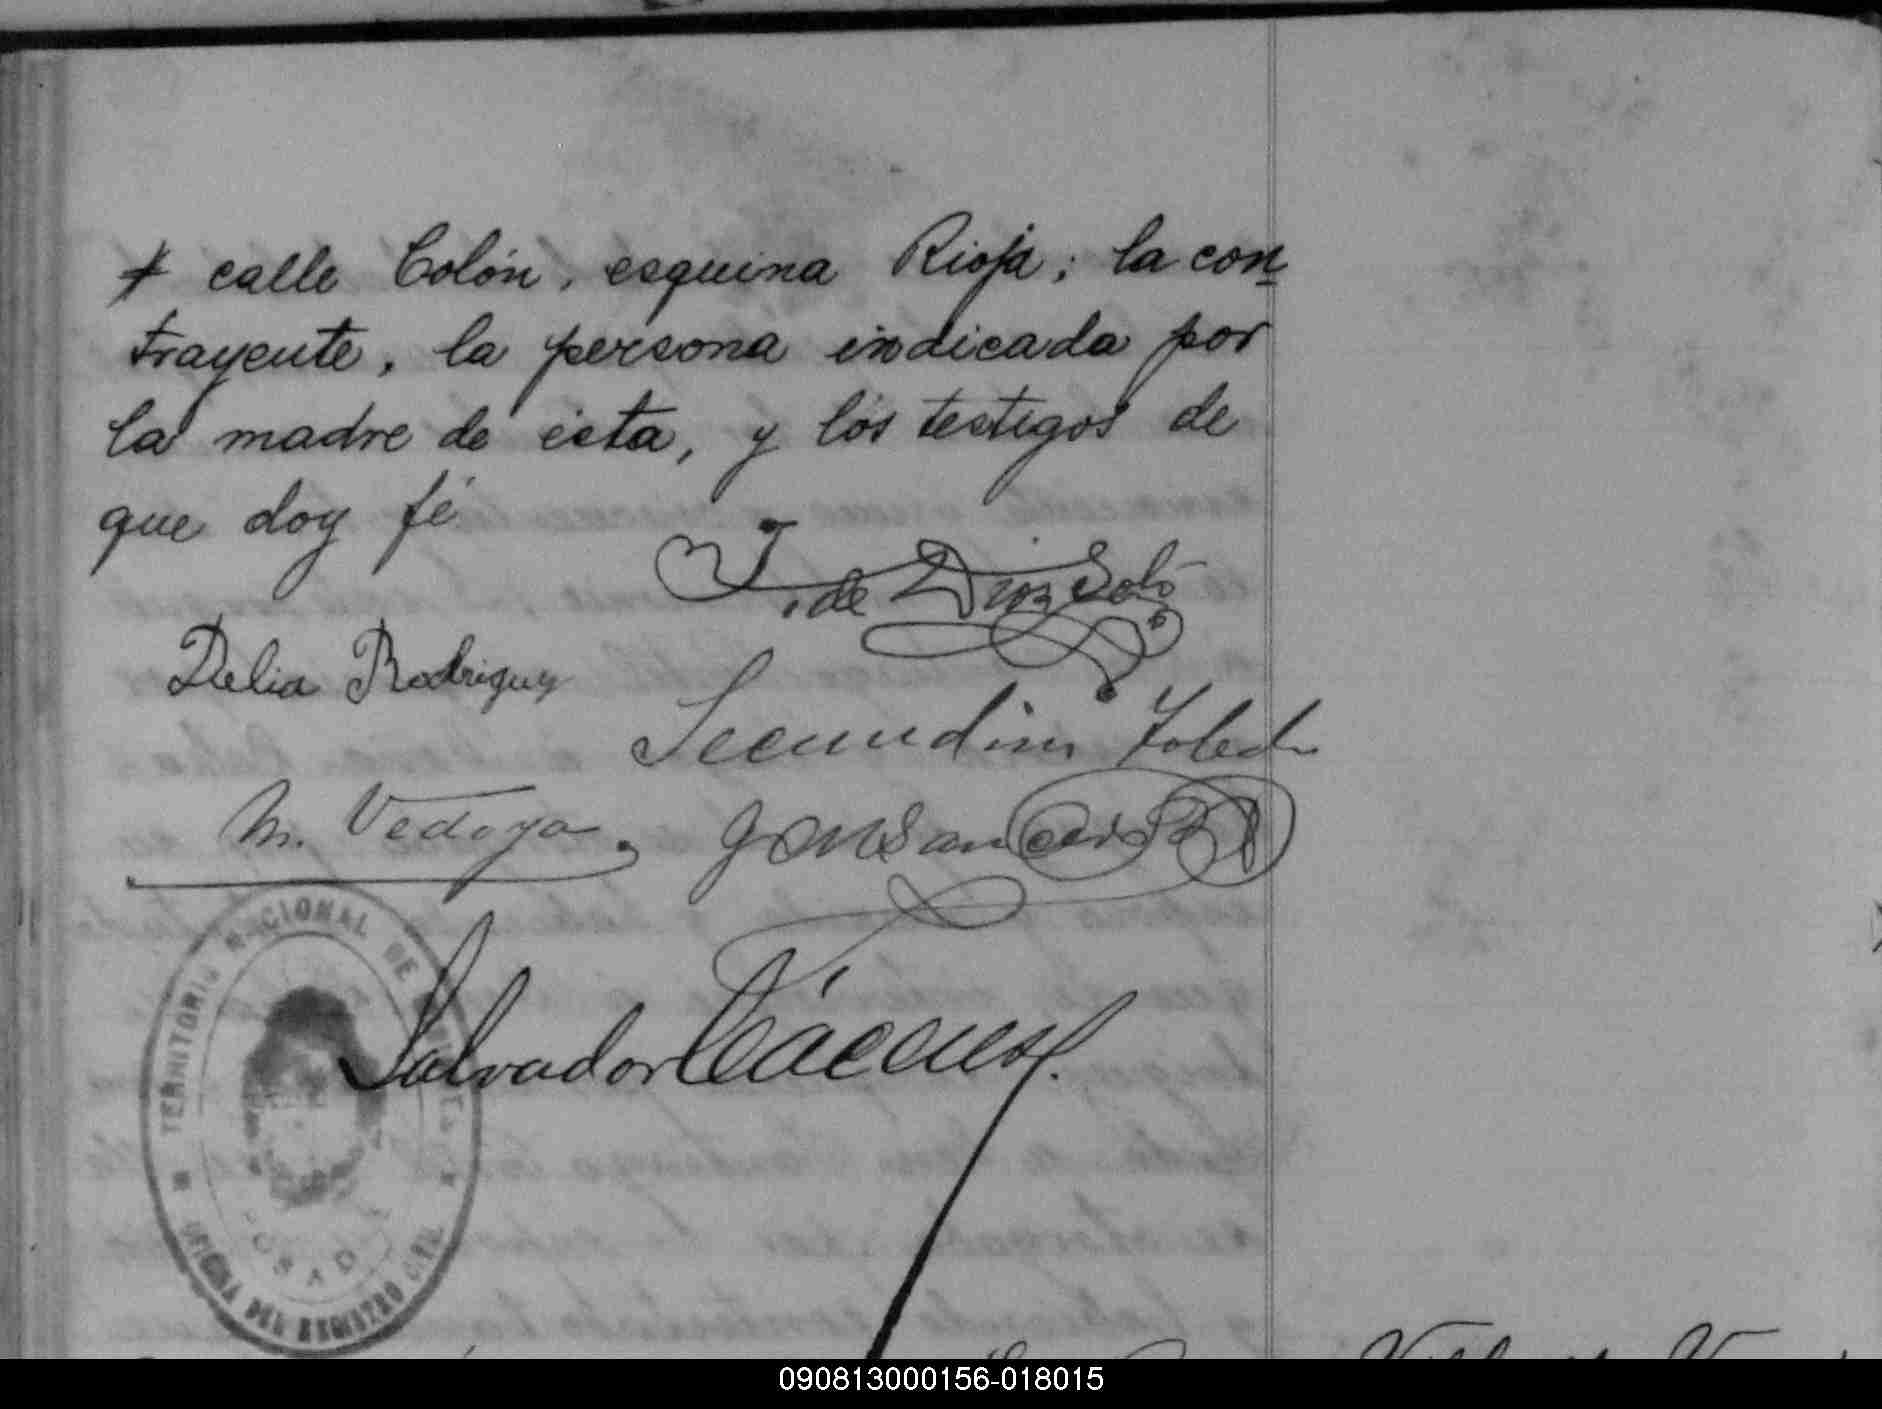 calle Colón, esquina Rioja; la con-
trayente, la persona indicada por
la madre de ésta, y los testigos de
que doy fé
J. de Dios Soto
Delia Rodriguez
Secundino Toledo
M. Vedoya
Salvador
TERRITORIO NACIONAL DE
OFICINA DEL REGISTRO CIVIL
090813000156-018015